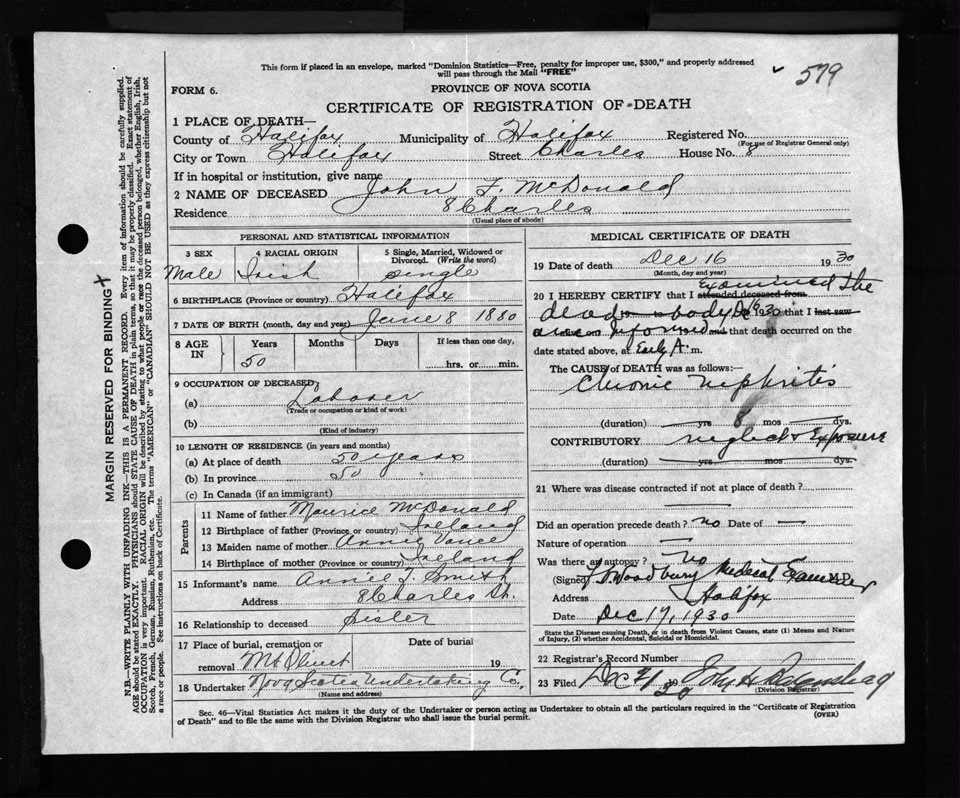 579
This form if placed in an envelope, marked "Dominion Statistics—Free, penalty for improper use, $300," and properly addressed
will pass through the Mail "FREE"
FORM 6.
PROVINCE OF NOVA SCOTIA
CERTIFICATE OF REGISTRATION OF DEATH
1 PLACE OF DEATH—
County of Halifax Municipality of Halifax Registered No.
(For use of Registrar General only)
City or Town Halifax Street Charles House No. 8
If in hospital or institution, give name
2 NAME OF DECEASED John F. McDonald
Residence 8 Charles
(Usual place of abode)
PERSONAL AND STATISTICAL INFORMATION
3 SEX 4 RACIAL ORIGIN 5 Single, Married, Widowed or
Divorced. (Write the word)
Male Irish single
6 BIRTHPLACE (Province or country) Halifax
7 DATE OF BIRTH (month, day and year) June 8 1880
8 AGE IN Years Months Days If less than one day,
50 hrs. or min.
9 OCCUPATION OF DECEASED
(a) Laborer
(Trade or occupation or kind of work)
(b)
(Kind of industry)
10 LENGTH OF RESIDENCE (in years and months)
(a) At place of death 50 years
(b) In province 50 "
(c) In Canada (if an immigrant)
Parents
11 Name of father Maurice McDonald
12 Birthplace of father (Province or country) Ireland
13 Maiden name of mother Annie Vance
14 Birthplace of mother (Province or country) Ireland
15 Informant's name Annie T. Smith
Address 8 Charles St.
16 Relationship to deceased Sister
17 Place of burial, cremation or Date of burial
removal Mt Olivet 19
18 Undertaker Nova Scotia Undertaking Co.
(Name and address)
MEDICAL CERTIFICATE OF DEATH
19 Date of death Dec 16 1930
(Month, day and year)
20 I HEREBY CERTIFY that I attended deceased from examined the
dead body Dec 16 1930 that I last saw
informed and that death occurred on
date stated above, at Early A. m.
The CAUSE of DEATH was as follows:
Chronic nephritis
(duration) yrs mos dys.
CONTRIBUTORY neglect & Exposure
(duration) yrs mos dys.
21 Where was disease contracted if not at place of death?
Did an operation precede death? no Date of —
Nature of operation —
Was there an autopsy? no
(Signed) Woodbury Medical Examiner
Address Halifax
Date Dec 17, 1930
State the Disease causing Death, or in death from Violent Causes, state (1) Means and Nature
of Injury, (2) whether Accidental, Suicidal or Homicidal.
22 Registrar's Record Number
23 Filed Dec 30 John H
(Division Registrar)
Sec. 46—Vital Statistics Act makes it the duty of the Undertaker or person acting as Undertaker to obtain all the particulars required in the "Certificate of Registration
of Death" and to file the same with the Division Registrar who shall issue the burial permit.
(OVER)
MARGIN RESERVED FOR BINDING
N.B.—WRITE PLAINLY WITH UNFADING INK—THIS IS A PERMANENT RECORD. Every item of information should be carefully supplied.
AGE should be stated EXACTLY. PHYSICIANS should STATE CAUSE OF DEATH in plain terms, so that it may be properly classified. Exact statement of
OCCUPATION is very important. RACIAL ORIGIN will be described by stating to what people or race the deceased person belonged, whether English, Irish,
Scotch, French, German, Russian, Ruthenian, etc. The terms "AMERICAN" or "CANADIAN" SHOULD NOT BE USED as they express citizenship but not
a race or people. See instructions on back of Certificate.